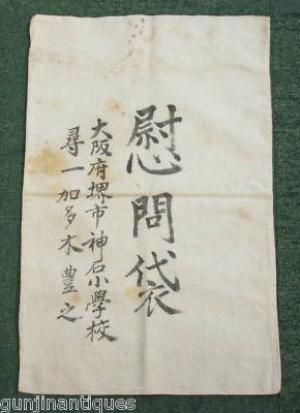 慰問袋
大阪府堺市神石小學校
尋一加多木豊之
gunjinantiques